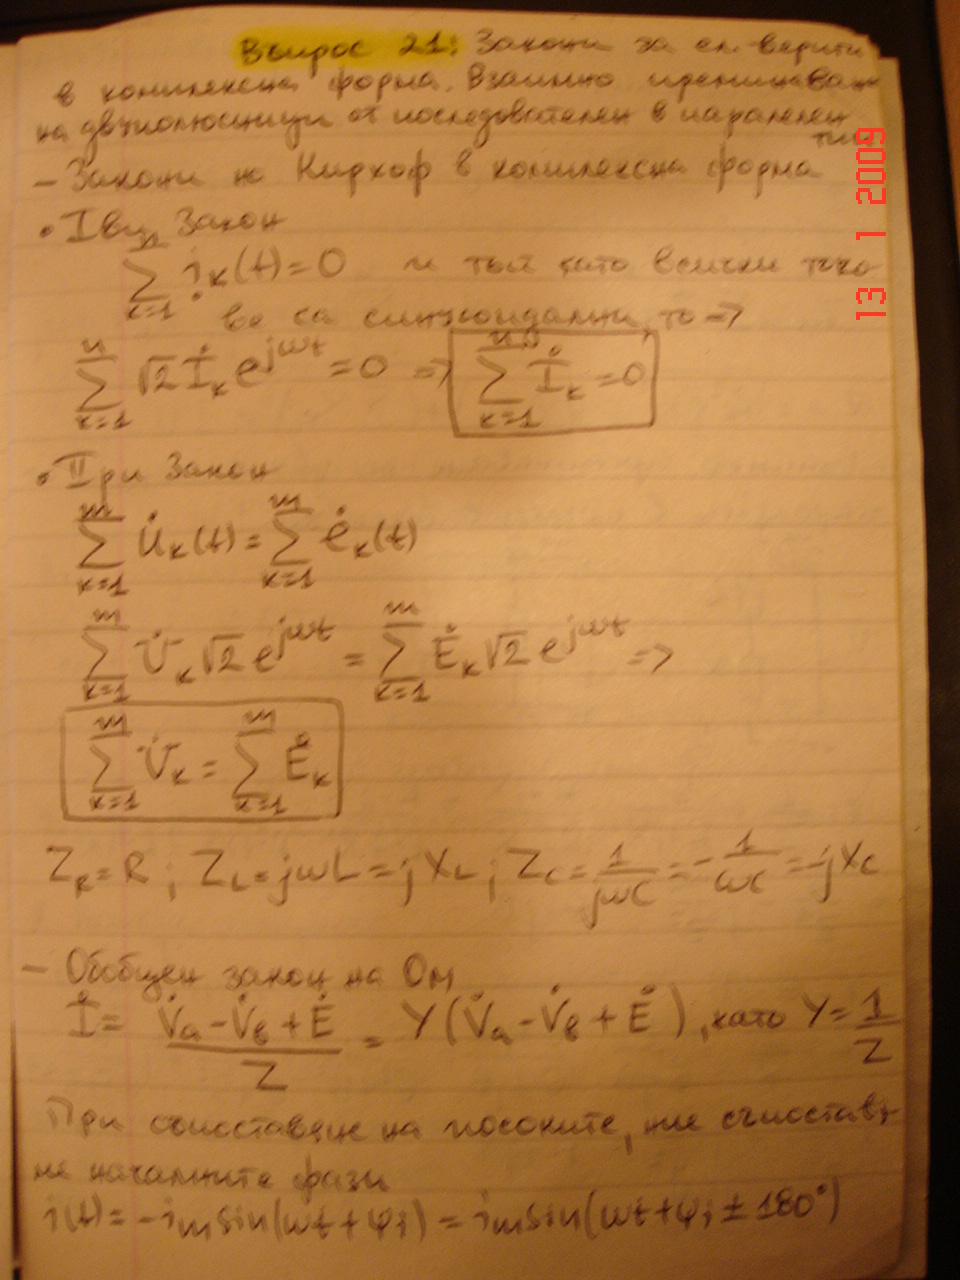 Въпрос 21: Закони за ел. вериги
в комплексна форма. Взаимно преминаване
на двуполюсници от последователен в паралелен
тип.
- Закони на Кирхоф в комплексна форма
• I ви Закон
n∑k=1 i̇ₖ(t)=0 и тъй като всички токо
ве са синусоидални, то =>
n∑k=1 √2 İₖ e^jωt = 0 => n∑k=1 İₖ = 0
• II ри Закон
m∑k=1 u̇ₖ(t) = m∑k=1 ėₖ(t)
m∑k=1 U̇ₖ √2 e^jωt = m∑k=1 Ėₖ √2 e^jωt =>
m∑k=1 U̇ₖ = m∑k=1 Ėₖ
Z_R = R ; Z_L = jωL = jX_L ; Z_C = 1/jωC = -1/ωC = -jX_C
- Обобщен закон на Ом
İ = (V̇a - V̇b + Ė)/Z = Y(V̇a - V̇b + Ė), като Y = 1/Z
При съпоставяне на посоките, ние съпоставя-
ме началните фази
i(t) = -iₘsin(ωt+ψᵢ) = iₘsin(ωt+ψᵢ ± 180°)
13 1 2009